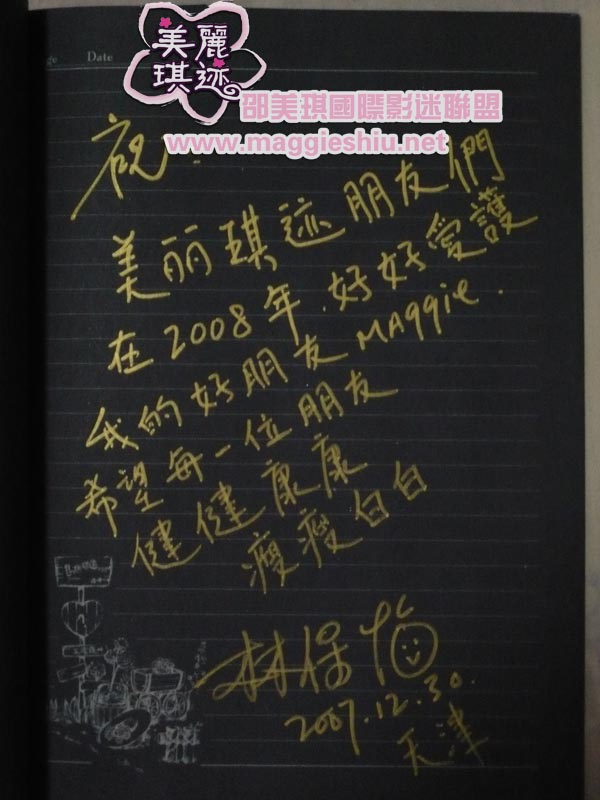 美麗
琪迹
邵美琪國際影迷聯盟
www.maggieshiu.net
Date
祝:
美丽琪迹朋友們
在2008年,好好愛護
我的好朋友MAggie.
希望每一位朋友
健健康康
瘦瘦白白
林保怡
2007.12.30.
天津